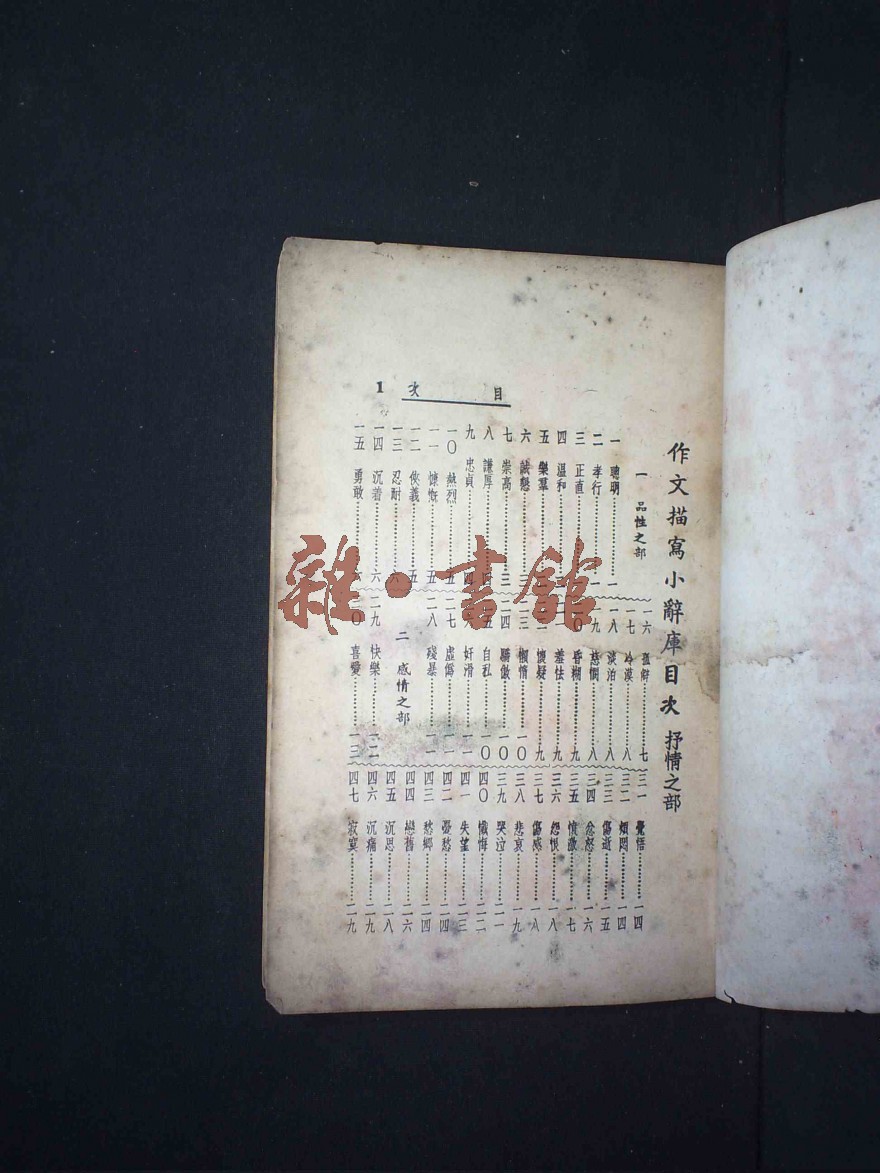 目次 1
作文描寫小辭庫目次 抒情之部
一 品性之部
一 聰明……一
二 孝行……一
三 正直……
四 温和……
五 樂羣……
六 誠懇……
七 崇高……三
八 謙厚……四
九 忠貞……四
一〇 熱烈……五
一一 慷慨……五
一二 俠義……五
一三 忍耐……六
一四 沉着……六
一五 勇敢……六
一六 ……七
一七 冷漠……八
一八 淡泊……八
一九 慈憫……八
二〇 昏糊……九
二一 羞怯……九
二二 懷疑……九
二三 懶惰……一〇
二四 驕傲……一〇
二五 自私……一〇
二六 奸滑……一一
二七 虛僞……一一
二八 殘暴……一一
二 感情之部
二九 快樂……一二
三〇 喜愛……一三
三一 覺悟……一四
三二 煩悶……一四
三三 傷逝……一五
三四 忿怒……一六
三五 憤激……一七
三六 怨恨……一八
三七 傷感……一八
三八 悲哀……一九
三九 哭泣……二一
四〇 懺悔……二二
四一 失望……二三
四二 憂愁……二四
四三 愁鄉……二四
四四 戀舊……二六
四五 沉思……二八
四六 沉痛……二九
四七 寂寞……二九
雜·書館